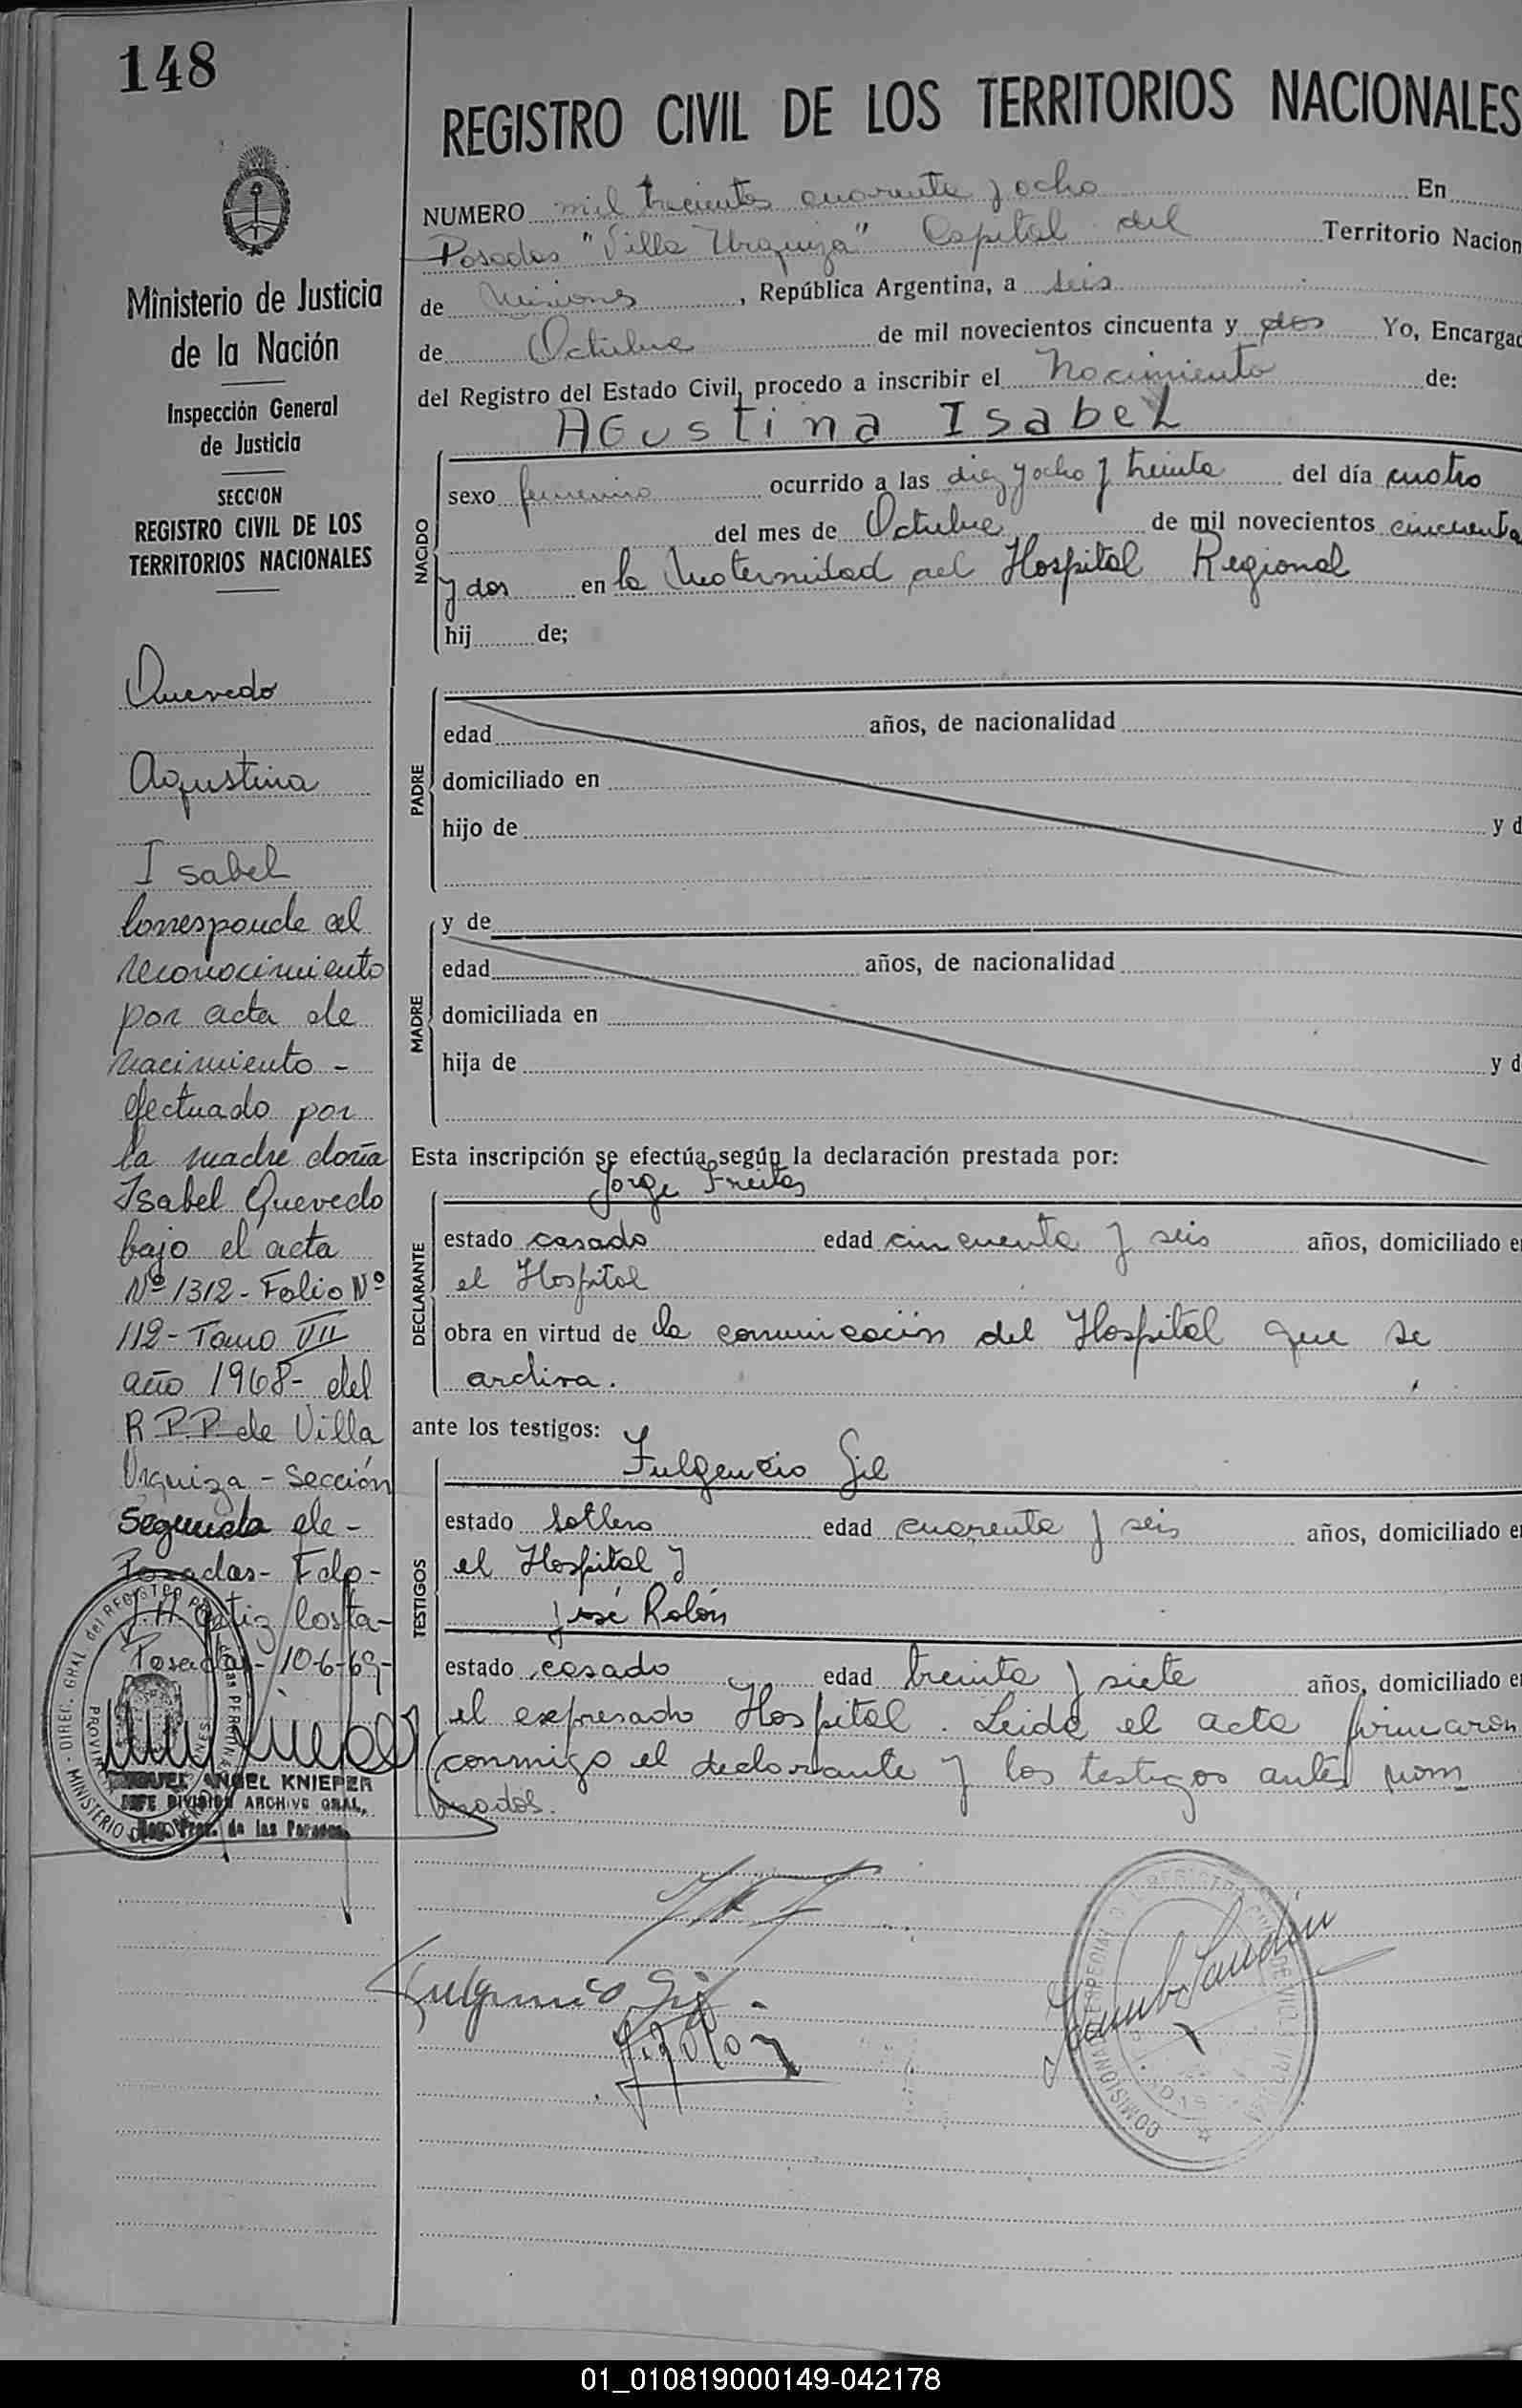 148
REGISTRO CIVIL DE LOS TERRITORIOS NACIONALES
NUMERO mil trecientos cuarenta y ocho En
Posadas "Villa Urquiza" Capital del Territorio Nacion
de Misiones, República Argentina, a seis
de Octubre de mil novecientos cincuenta y dos Yo, Encargad
del Registro del Estado Civil, procedo a inscribir el Nacimiento de:
AGustina IsabeL
NACIDO
sexo femenino ocurrido a las diez y ocho y treinta del día cuatro
del mes de Octubre de mil novecientos cincuenta
y dos en la Maternidad del Hospital Regional
hij de;
PADRE
edad años, de nacionalidad
domiciliado en
hijo de y d
MADRE
y de
edad años, de nacionalidad
domiciliada en
hija de y d
Esta inscripción se efectúa según la declaración prestada por:
Jorge Freites
DECLARANTE
estado casado edad cincuenta y seis años, domiciliado en
el Hospital
obra en virtud de la comunicación del Hospital que se
archiva.
ante los testigos:
Fulgencio Gil
TESTIGOS
estado soltero edad cuarenta y seis años, domiciliado en
el Hospital y
José Rolón
estado casado edad treinta y siete años, domiciliado en
el expresado Hospital. Leida el acta firmaron
conmigo el declarante y los testigos antes nom
brados.
Fulgencio Gil
J. Rolon
Ministerio de Justicia
de la Nación
Inspección General
de Justicia
SECCION
REGISTRO CIVIL DE LOS
TERRITORIOS NACIONALES
Quevedo
Agustina
Isabel
Corresponde al
reconocimiento
por acta de
nacimiento -
efectuado por
la madre doña
Isabel Quevedo
bajo el acta
Nº 1312 - Folio Nº
112 - Tomo VII
año 1968 - del
R.P.P. de Villa
Urquiza - Sección
Segunda de -
Posadas - Fdo -
Ortiz Costa -
Posadas - 10-6-69 -
MIGUEL ANGEL KNIEPER
JEFE DIVISION ARCHIVO GRAL,
Reg. Prov. de las Personas
01_010819000149-042178